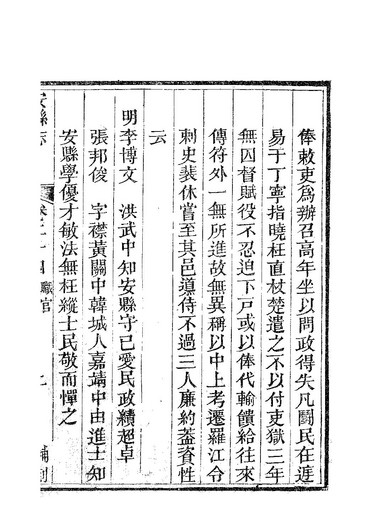 俸敕吏爲辦召高年坐以問政得失凡鬭民在廷
易于丁寧指曉枉直杖楚遣之不以付吏獄三年
無囚督賦役不忍迫下戸或以俸代輸饋給往來
傳符外一無所進故無異稱以中上考遷羅江令
刺史裴休嘗至其邑導侍不過三人廉約蓋資性
云
明李博文 洪武中知安縣守己愛民政績超卓
張邦俊 字襟黃關中韓城人嘉靖中由進士知
安縣學優才敏法無枉縱士民敬而憚之
安縣志 卷之二十四職官